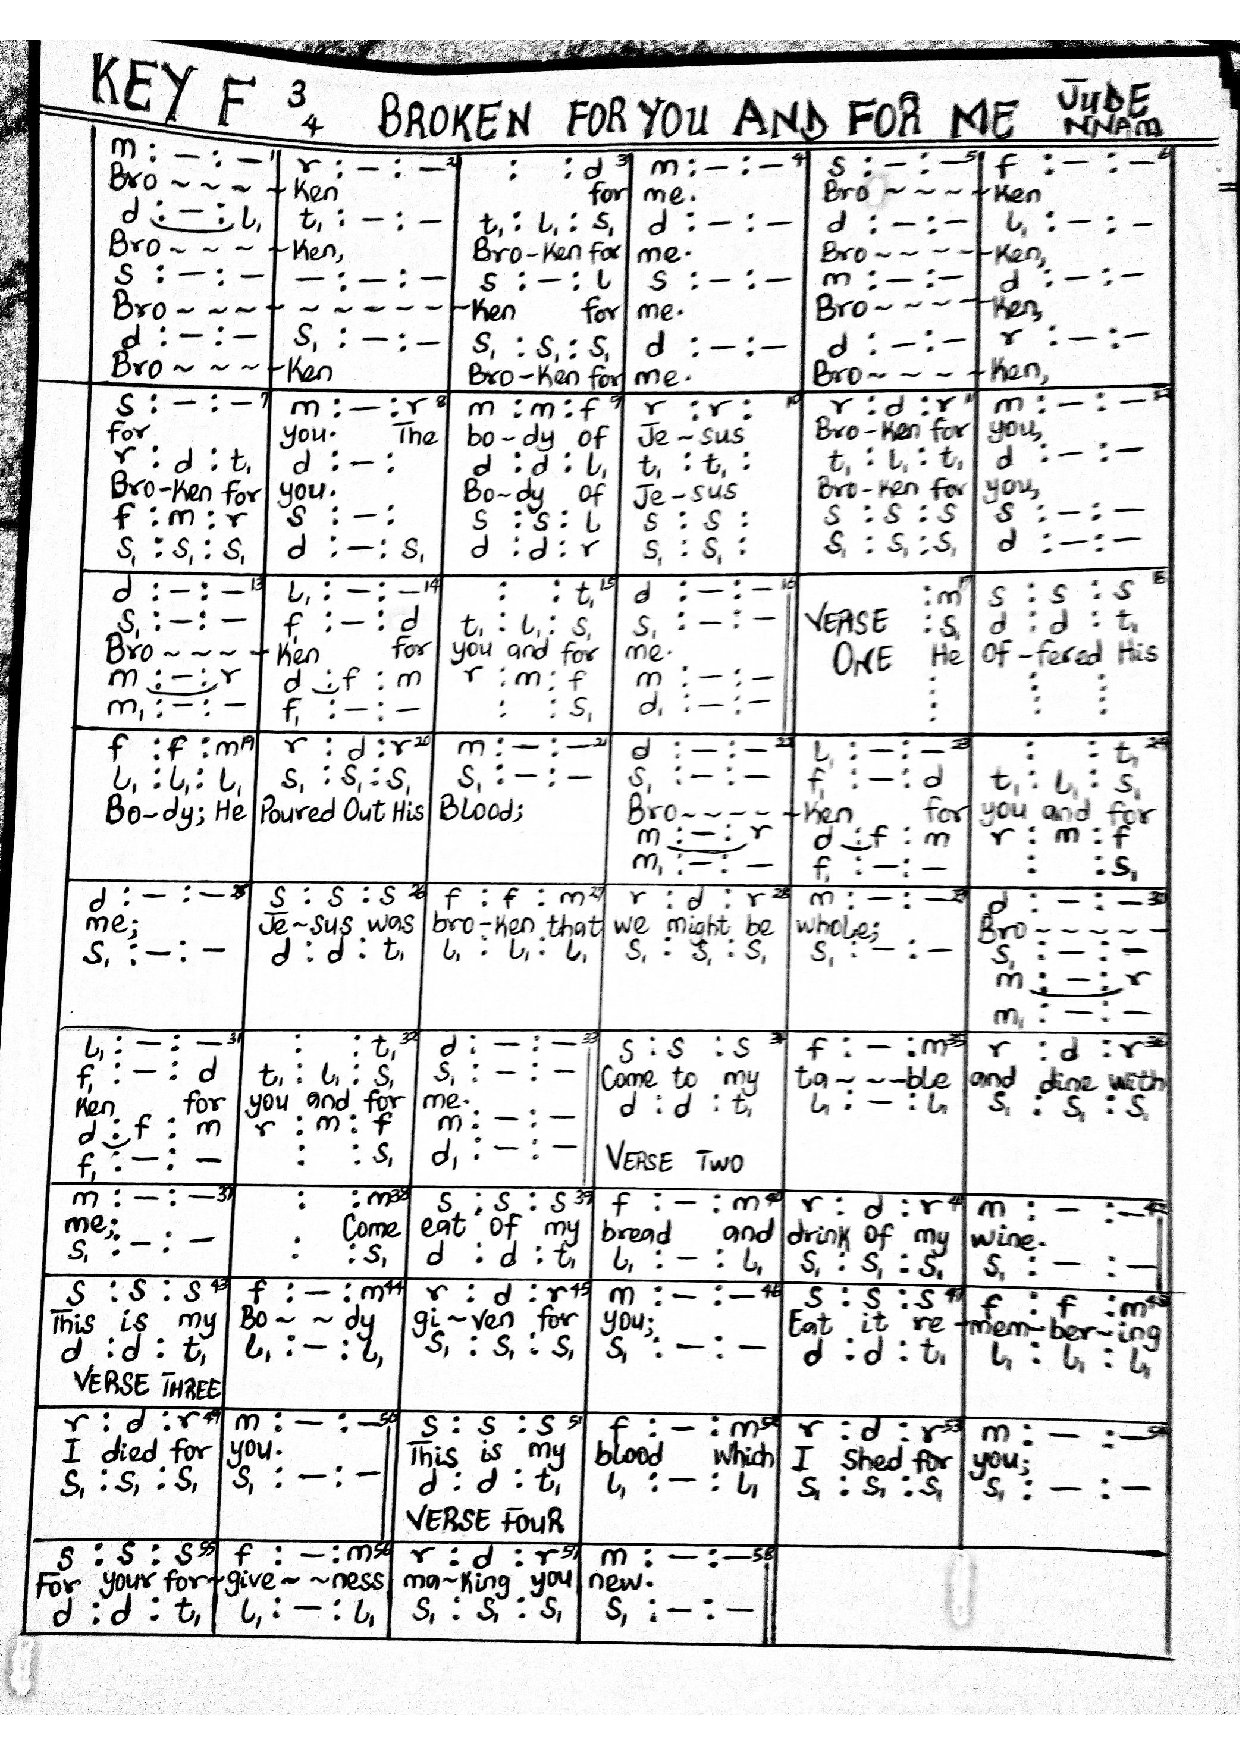 KEY F 3/4 BROKEN FOR YOU AND FOR ME JUDE NNAM
m : – : – 1 | r : – : – 2 | : : d 3 | m : – : – 4 | s : – : – 5 | f : – : – 6
Bro ~ ~ ~ ~ Ken for me. Bro ~ ~ ~ ~ Ken
d : – : l, | t, : – : – | t, : l, : s, | d : – : – | d : – : – | l, : – : –
Bro ~ ~ ~ ~ Ken, Bro-Ken for me. Bro ~ ~ ~ ~ Ken,
s : – : – | – : – : – | s : – : l | s : – : – | m : – : – | d : – : –
Bro ~ ~ ~ ~ ~ ~ ~ ~ Ken for me. Bro ~ ~ ~ ~ Ken,
d : – : – | s, : – : – | s, : s, : s, | d : – : – | d : – : – | r : – : –
Bro ~ ~ ~ ~ Ken Bro-Ken for me. Bro ~ ~ ~ ~ Ken,
s : – : – 7 | m : – : r 8 | m : m : f 9 | r : r : 10 | r : d : r 11 | m : – : – 12
for you. The bo-dy of Je-sus Bro-Ken for you,
r : d : t, | d : – : | d : d : l, | t, : t, : | t, : l, : t, | d : – : –
Bro-Ken for you. Bo-dy of Je-sus Bro-Ken for you,
f : m : r | s : – : | s : s : l | s : s : | s : s : s | s : – : –
s, : s, : s, | d : – : s, | d : d : r | s, : s, : | s, : s, : s, | d : – : –
d : – : – 13 | l, : – : – 14 | : : t, 15 | d : – : – 16 | : m 17 | s : s : s 18
s, : – : – | f, : – : d | t, : l, : s, | s, : – : – | VERSE : s, | d : d : t,
Bro ~ ~ ~ ~ Ken for you and for me. ONE He Of-fered His
m : – : r | d : f : m | r : m : f | m : – : – | : | : :
m, : – : – | f, : – : – | : : s, | d, : – : – | : | : :
f : f : m 19 | r : d : r 20 | m : – : – 21 | d : – : – 22 | l, : – : – 23 | : : t, 24
l, : l, : l, | s, : s, : s, | s, : – : – | s, : – : – | f, : – : d | t, : l, : s,
Bo-dy; He Poured Out His Blood; Bro ~ ~ ~ ~ Ken for you and for
m : – : r | d : f : m | r : m : f
m, : – : – | f, : – : – | : : s,
d : – : – 25 | s : s : s 26 | f : f : m 27 | r : d : r 28 | m : – : – 29 | d : – : – 30
me; Je-sus was bro-Ken that we might be whole; Bro ~ ~ ~ ~
s, : – : – | d : d : t, | l, : l, : l, | s, : s, : s, | s, : – : – | s, : – : –
m : – : r
m, : – : –
l, : – : – 31 | : : t, 32 | d : – : – 33 | s : s : s 34 | f : – : m 35 | r : d : r 36
f, : – : d | t, : l, : s, | s, : – : – | Come to my ta ~ ~ -ble and dine with
Ken for you and for me. d : d : t, | l, : – : l, | s, : s, : s,
d : f : m | r : m : f | m : – : –
f, : – : – | : : s, | d, : – : – | VERSE TWO
m : – : – 37 | : : m 38 | s : s : s 39 | f : – : m 40 | r : d : r 41 | m : – : – 42
me; Come eat of my bread and drink of my wine.
s, : – : – | : : s, | d : d : t, | l, : – : l, | s, : s, : s, | s, : – : –
s : s : s 43 | f : – : m 44 | r : d : r 45 | m : – : – 46 | s : s : s 47 | f : f : m 48
This is my Bo ~ ~ dy gi-ven for you; Eat it re-mem-ber-ing
d : d : t, | l, : – : l, | s, : s, : s, | s, : – : – | d : d : t, | l, : l, : l,
VERSE THREE
r : d : r 49 | m : – : – 50 | s : s : s 51 | f : – : m 52 | r : d : r 53 | m : – : – 54
I died for you. This is my blood which I Shed for you;
s, : s, : s, | s, : – : – | d : d : t, | l, : – : l, | s, : s, : s, | s, : – : –
VERSE FOUR
s : s : s 55 | f : – : m 56 | r : d : r 57 | m : – : – 58
For your for-give ~ ~ ness ma-King you new.
d : d : t, | l, : – : l, | s, : s, : s, | s, : – : –